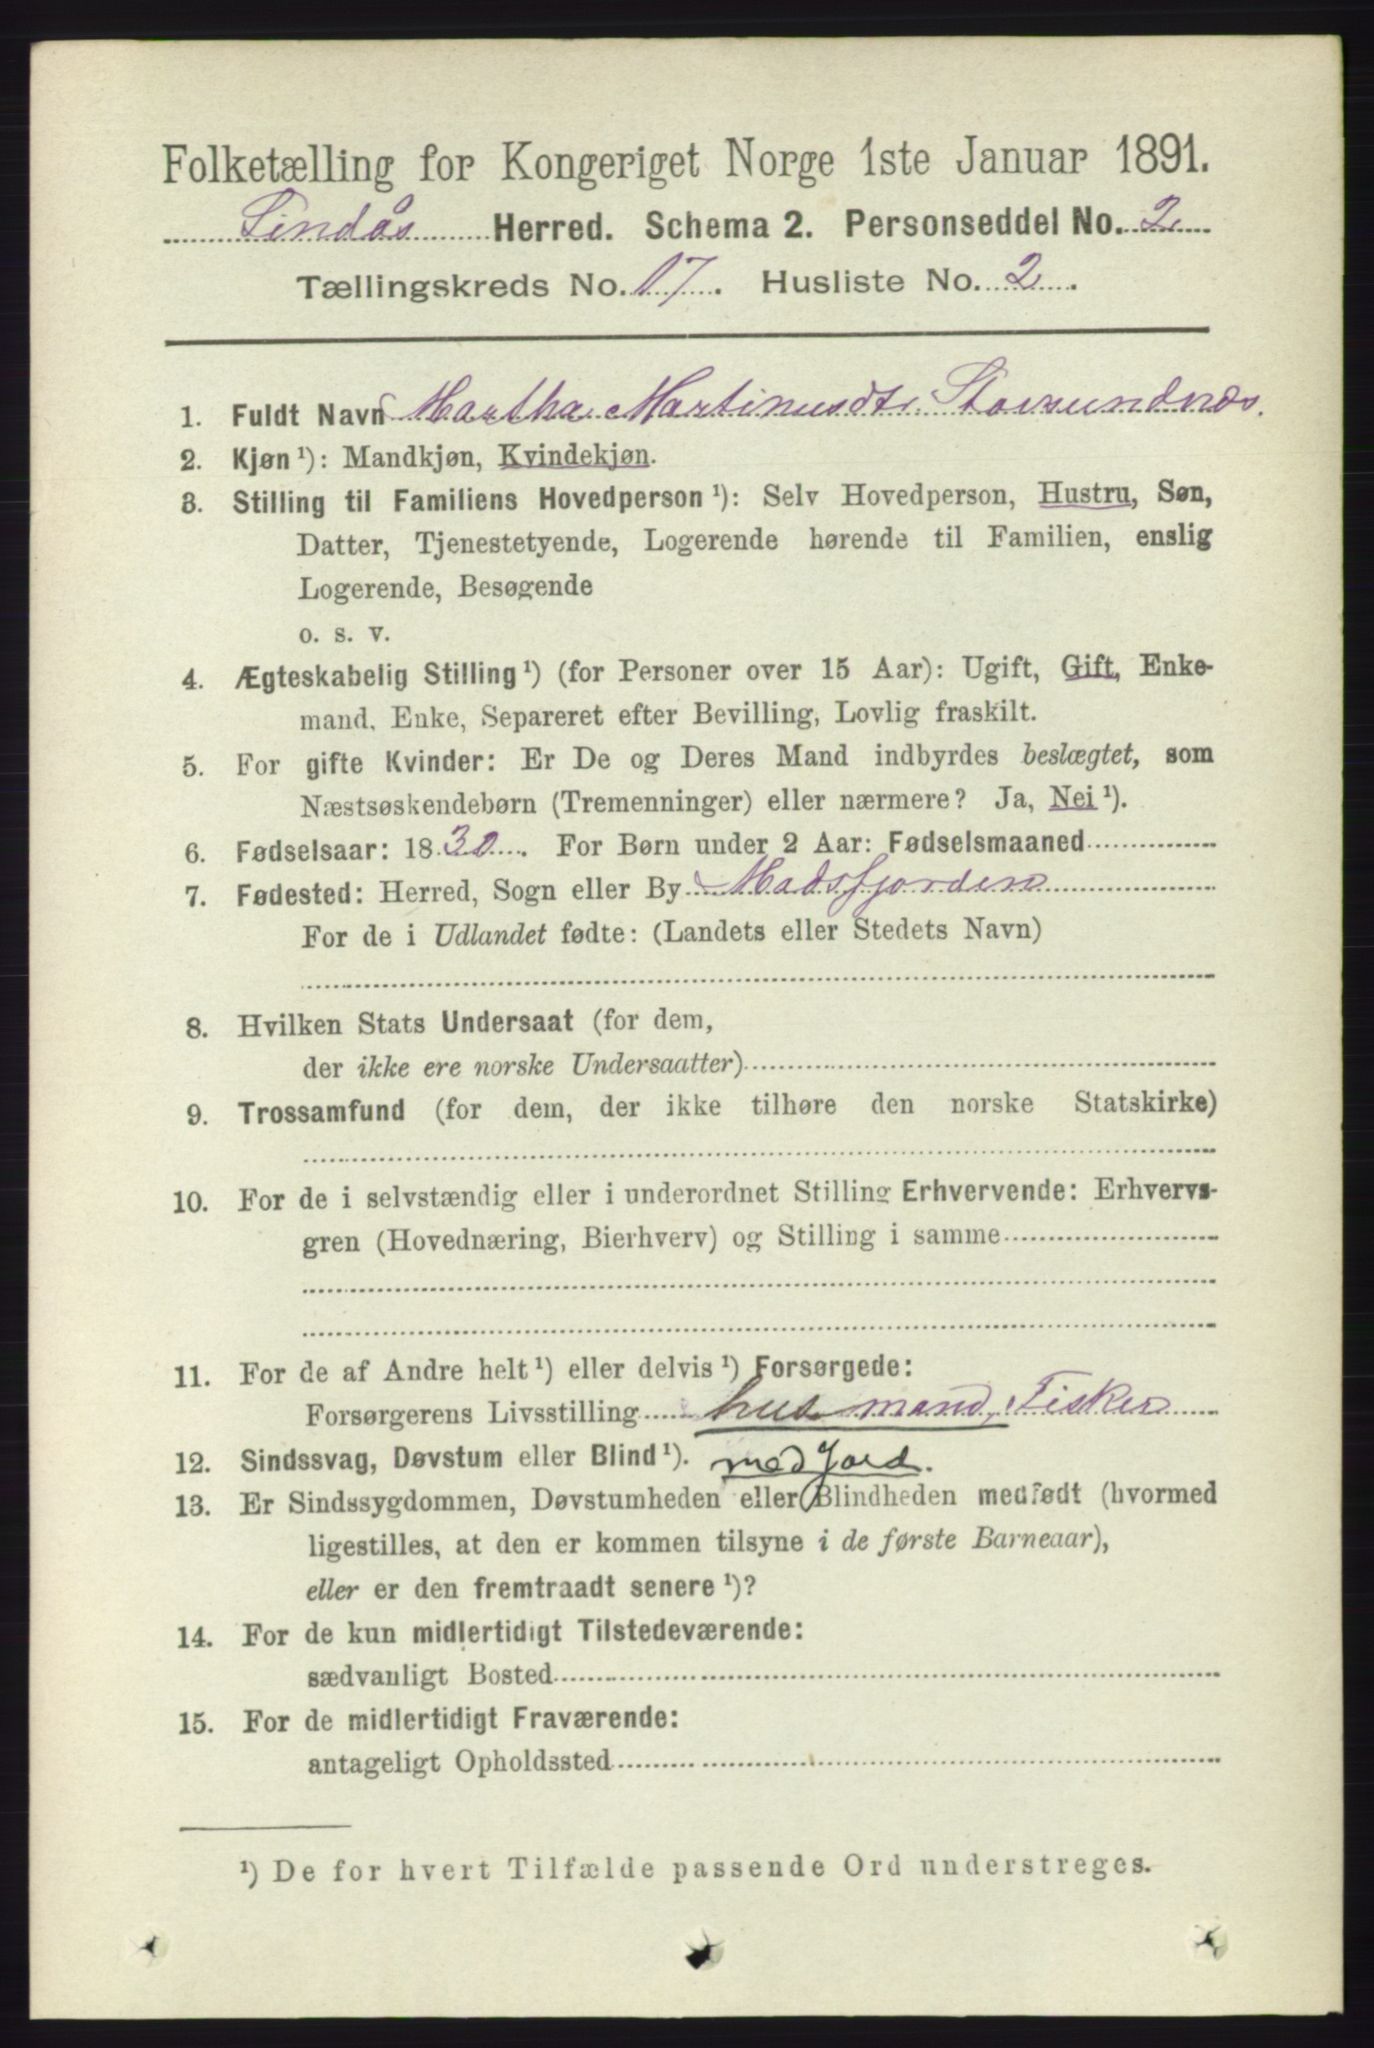 Folketælling for Kongeriget Norge 1ste Januar 1891.
Lindås Herred. Schema 2. Personseddel No. 2
Tællingskreds No. 17. Husliste No. 2.
1. Fuldt Navn Martha Martinusdtr Storsundnæs
2. Kjøn ¹): Mandkjøn, Kvindekjøn.
3. Stilling til Familiens Hovedperson ¹): Selv Hovedperson, Hustru, Søn,
Datter, Tjenestetyende, Logerende hørende til Familien, enslig
Logerende, Besøgende
o. s. v.
4. Ægteskabelig Stilling ¹) (for Personer over 15 Aar): Ugift, Gift, Enke-
mand, Enke, Separeret efter Bevilling, Lovlig fraskilt.
5. For gifte Kvinder: Er De og Deres Mand indbyrdes beslægtet, som
Næstsøskendebørn (Tremenninger) eller nærmere? Ja, Nei ¹).
6. Fødselsaar: 1830. For Børn under 2 Aar: Fødselsmaaned
7. Fødested: Herred, Sogn eller By Madsfjorden
For de i Udlandet fødte: (Landets eller Stedets Navn)
8. Hvilken Stats Undersaat (for dem,
der ikke ere norske Undersaatter)
9. Trossamfund (for dem, der ikke tilhøre den norske Statskirke)
10. For de i selvstændig eller i underordnet Stilling Erhvervende: Erhvervs-
gren (Hovednæring, Bierhverv) og Stilling i samme
11. For de af Andre helt ¹) eller delvis ¹) Forsørgede:
Forsørgerens Livsstilling husmand, Fisker
12. Sindssvag, Døvstum eller Blind ¹). med Jord.
13. Er Sindssygdommen, Døvstumheden eller Blindheden medfødt (hvormed
ligestilles, at den er kommen tilsyne i de første Barneaar),
eller er den fremtraadt senere ¹)?
14. For de kun midlertidigt Tilstedeværende:
sædvanligt Bosted
15. For de midlertidigt Fraværende:
antageligt Opholdssted
¹) De for hvert Tilfælde passende Ord understreges.